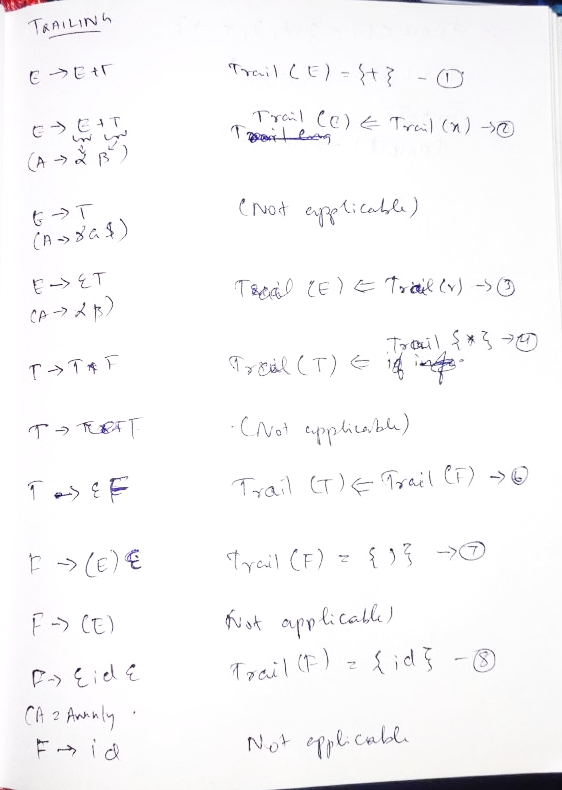 TRAILING
E → E+T Trail (E) = {+} - ①
E → E+T Trail (E) ⇐ Trail (n) → ②
(A → α B)
E → T (Not applicable)
E → ɛT Trail (E) ⇐ Trail (r) → ③
(A → α B)
T → T * F Trail (T) ⇐ Trail {*} → ④
T → (Not applicable)
T → ɛF Trail (T) ⇐ Trail (F) → ⑥
F → (E) ɛ Trail (F) = { ) } → ⑦
F → (E) Not applicable)
F → ɛ id ɛ Trail (F) = {id} - ⑧
F → id Not applicable